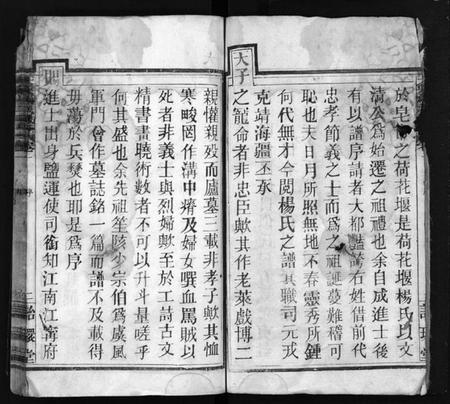 於皂橋之荷花堰是荷花堰楊氏以文
淸公爲始遷之祖禮也余自成進士後
有以譜序請者大都豔諸右姓借前代
忠孝節義之士而爲之祖誕蔓難稽可
恥也夫日月所照無地不春靈秀所鍾
何代無才今閱楊氏之譜其職司元戎
克靖海疆丕承
天子
之寵命者非忠臣歟其作老萊戲博二
親懽親歿而廬墓三載非孝子歟其恤
寒畯罔作溝中瘠及婦女嘪血罵賊以
死者非義士與烈婦歟至於工詩古文
精書畫曉術數者不可以升斗量嗟乎
何其盛也余先祖笙陔少宗伯爲虞風
軍門會作墓誌銘一篇而譜不及載得
毋蕩於兵燹也耶是爲序
進士出身鹽運使司銜知江南江甯府